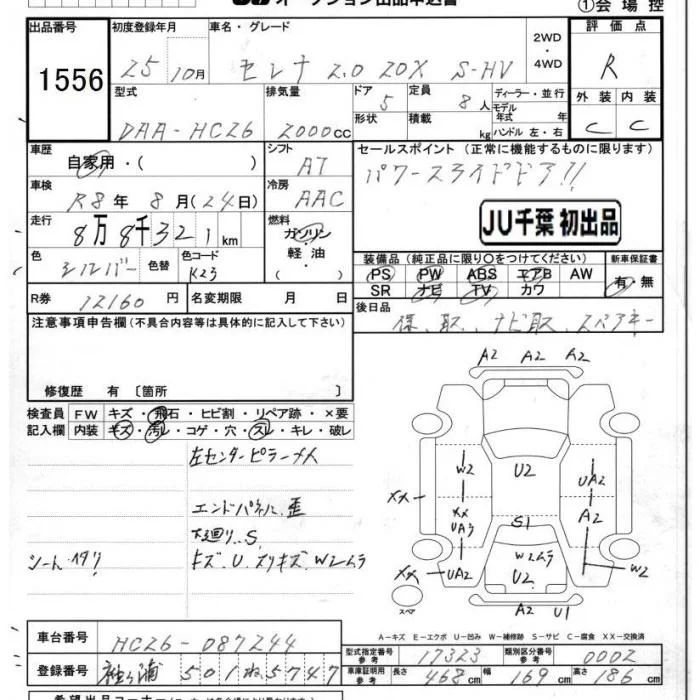 オークション出品申込書 ①会場控
出品番号 初度登録年月 車名・グレード 2WD・4WD 評価点
1556 25 10月 セレナ 2.0 20X S-HV R
型式 排気量 ドア 定員 ディーラー・並行 外装 内装
DAA-HC26 2000cc 5 8人 モデル年式 年 C C
形状 積載 kg ハンドル 左・右
車歴 シフト セールスポイント(正常に機能するものに限ります)
自家用・( ) AT パワースライドドア!!
車検 冷房
R8年8月(24日) AAC
走行 燃料 JU千葉 初出品
8万8千321km ガソリン・軽油( )
色 色替 色コード 装備品(純正品に限り○をつけてください) 新車保証書
シルバー K23 PS PW ABS エアB AW 有・無
SR ナビ TV カワ
R券 12160円 名変期限 月 日 後日品
保、取、ナビ取、スペアキー
注意事項申告欄(不具合内容等は具体的に記入して下さい)
修復歴 有〔箇所 〕
検査員記入欄 FW キズ・飛石・ヒビ割・リペア跡・×要
内装 キズ・汚レ・コゲ・穴・スレ・キレ・破レ
左センターピラーメ人
エンドパネル歪
下廻り、S
シートヘタリ キズ、U、スリキズ、W2ムラ
A2 A2 A2
W2 U2 UA2
XX XX UA3 S1 A2
XX UA2 W2ムラ U2 W2
スペア A2 U1
A-キズ E-エクボ U-凹み W-補修跡 S-サビ C-腐食 XX-交換済
車台番号 HC26-087244 型式指定番号 参考 17323 類別区分番号 参考 0002
登録番号 袖ヶ浦 501 ね 5747 車庫証明用 参考 長さ 468cm 幅 169cm 高さ 186cm